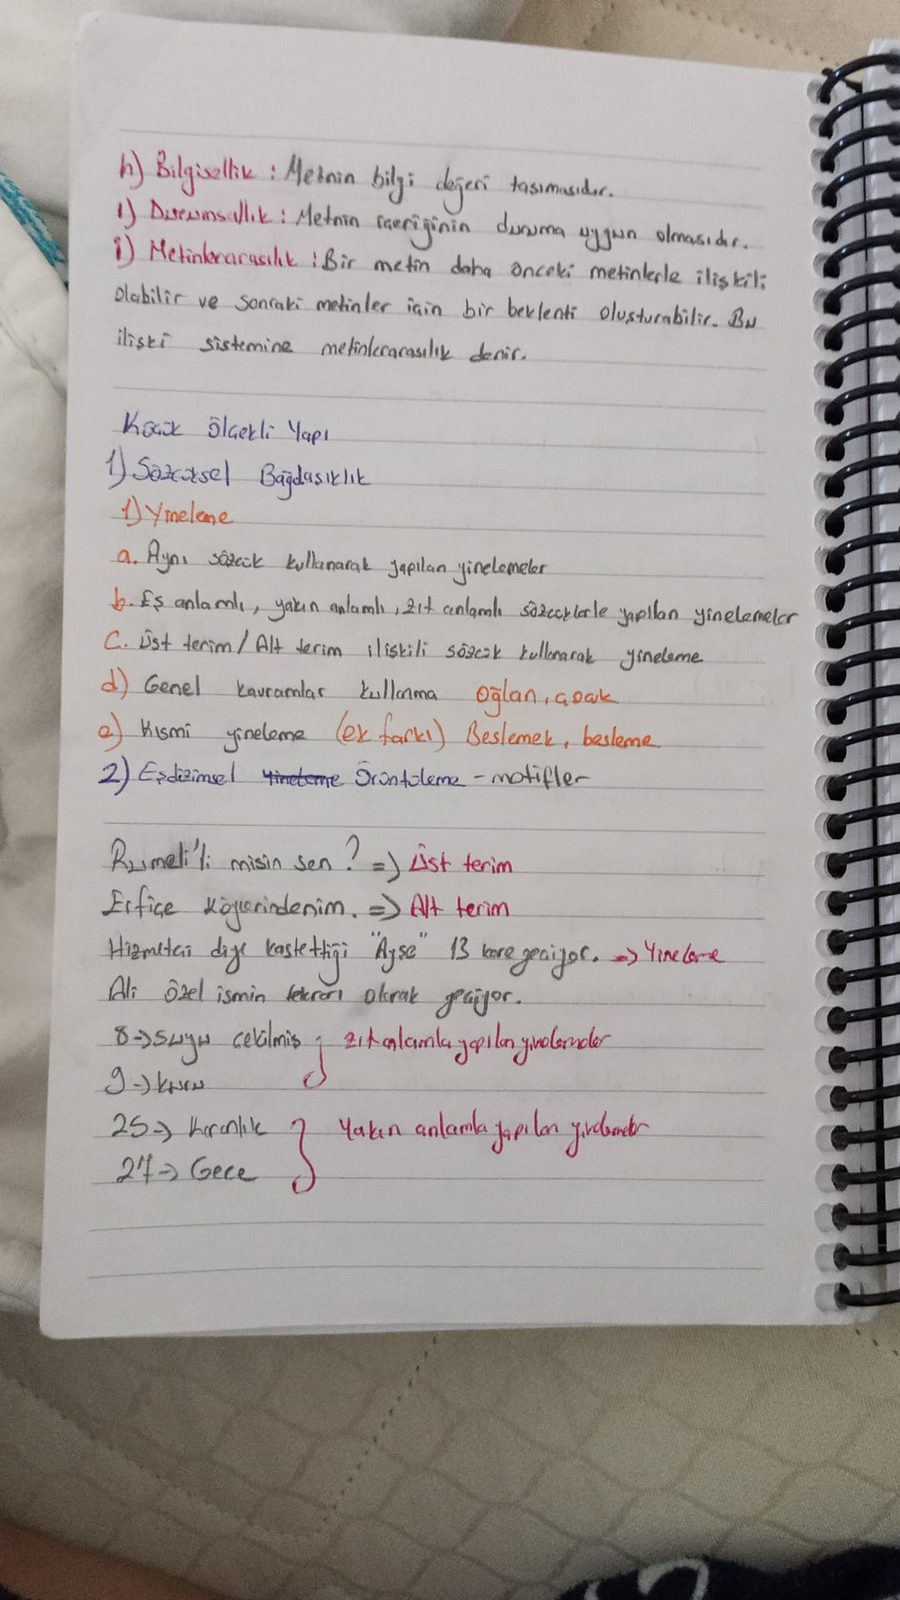 h) Bilgisellik : Metnin bilgi değeri taşımasıdır.
ı) Durumsallık : Metnin içeriğinin duruma uygun olmasıdır.
i) Metinlerarasılık : Bir metin daha önceki metinlerle ilişkili
olabilir ve sonraki metinler için bir beklenti oluşturabilir. Bu
ilişki sistemine metinlerarasılık denir.
Küçük Ölçekli Yapı
1) Sözcüksel Bağdaşıklık
1) Yineleme
a. Aynı sözcük kullanarak yapılan yinelemeler
b. Eş anlamlı, yakın anlamlı, zıt anlamlı sözcüklerle yapılan yinelemeler
c. Üst terim / Alt terim ilişkili sözcük kullanarak yineleme
d) Genel kavramlar kullanma oğlan, çocuk
e) Kısmi yineleme (ek farkı) Beslemek, besleme
2) Eşdizimsel Yineleme Örüntüleme - motifler
Rumeli'li misin sen? => Üst terim
Erfiçe köylerindenim. => Alt terim
Hizmetçi diye kastettiği "Ayşe" 13 kere geçiyor. => Yineleme
Ali özel ismin tekrarı olarak geçiyor.
8 -> suyu çekilmiş } zıt anlamla yapılan yinelemeler
9 -> kuru
25 -> Karanlık } Yakın anlamla yapılan yinelemeler
27 -> Gece